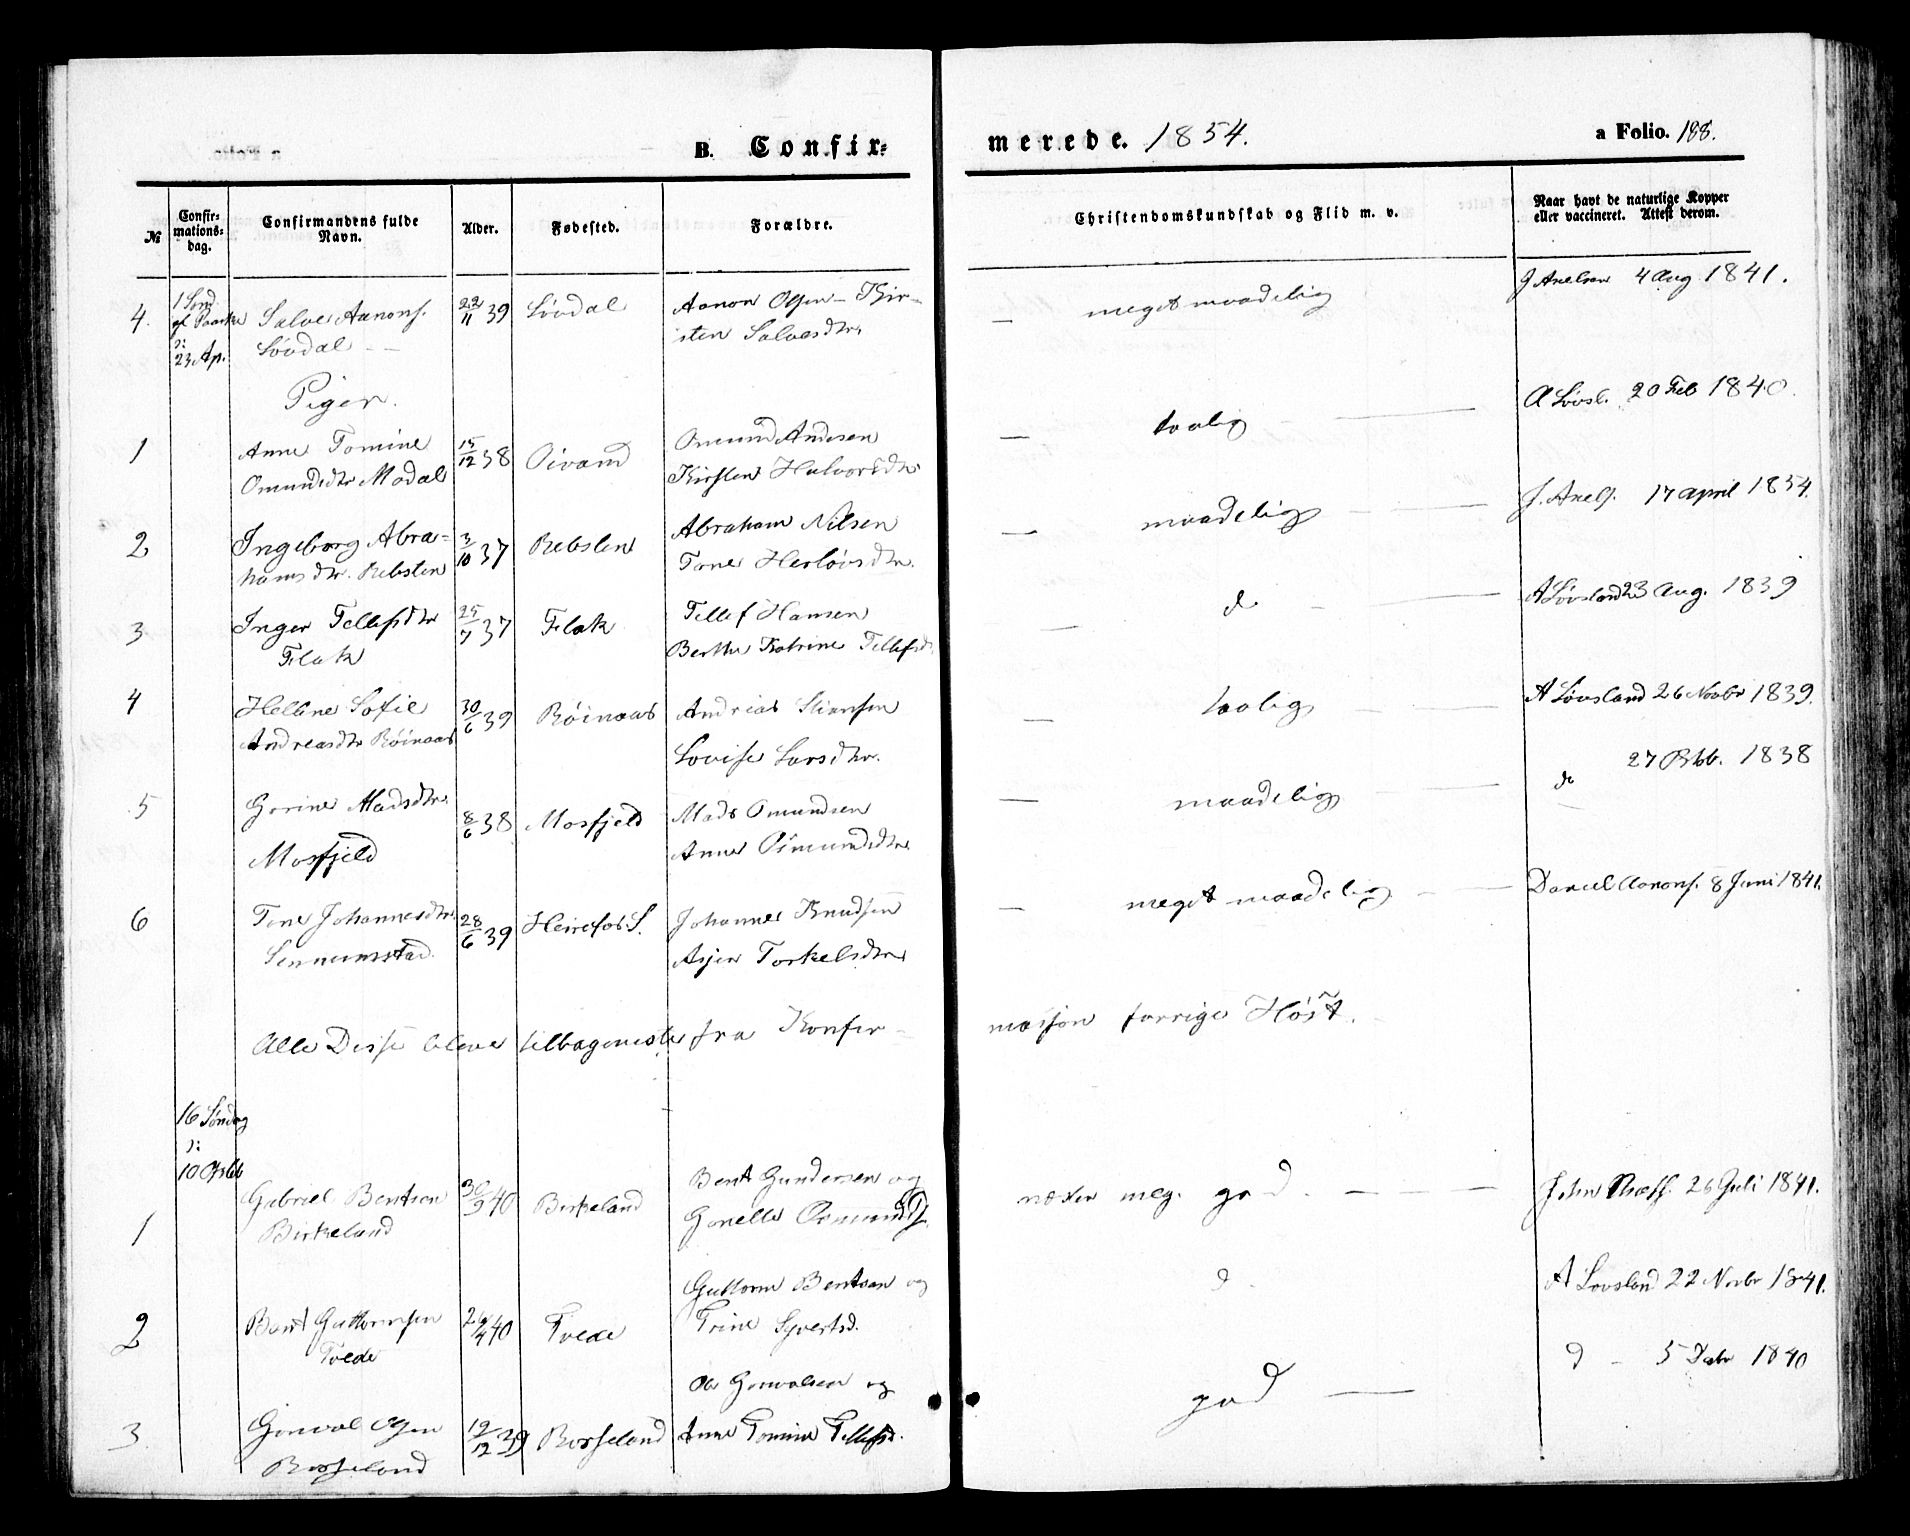 B. Confir=
merede. 1854.
a Folio. 188.
№
Confir=
mations-
dag.
Confirmandens fulde
Navn.
Alder.
Fødested.
Forældre.
Christendomskundskab og Flid m. v.
Naar havt de naturlige Kopper
eller vaccineret. Attest derom.
4. 1 Sønd. Salve Aanons. 22/11 39 Løvdal Aanon Olsen - Kir- — meget maadelig 4 Aug 1841.
ef Paaske Løvdal sten Salvesdtr
23 Ap.
Piger.
1 Anne Tomine 15/12 38 Oivand Omund Andersen — taalig — A Løvsl. 20 Feb 1840.
Omundsdtr Modal Kirsten Halvorsdtr
2 Ingeborg Abra= 3/10 37 Rebsten Abraham Nilsen — maadelig — 17 April 1854.
hamsdtr. Rebsten Tone Herløvsdtr.
3 Inger Tellefsdtr 25/7 37 Flak Tellef Hansen — do — A Løvsland 23 Aug. 1839
Flak Berthe Katrine Tellefsd
4 Helene Sofie 30/6 39 Røinaas Andreas — taalig A Løvsland 26 Novbr 1839.
Andreasdtr Røinaas Lovise Larsdtr.
5 Gorine Madsdtr. 8/6 38 Mosfjeld Mads Omundsen — maadelig — do 27 1838
Mosfjeld Anne Osmundsdtr
6 Tone Johannesdtr. 28/6 39 Heirefos S. Johannes Knudsen — meget maadelig — Daniel Aanons. 8 Juni 1841.
Sennumstad. Asjer Torkelsdtr
Alle Disse bleve tilbageviste fra Konfir- masjon forrige Høst.
16 Søndag
10
1 Gabriel Bentsen 30/9 40 Birkeland Bent Gundersen og næsten meg. god. — — — John 26 Juli 1841.
Birkeland Gunelle Osmundsd.
2 Bent Guttormsen 40 Tvede Guttorm Bentsen og d. A Løvsland 22 Novbr 1841.
Tvede Trine Syvertsd.
3 Gunval Olsen 19/12 39 Birkeland Ole Gunvalsen og god — d - 5 Debr 1840
Anne Tomine Tellefsd.